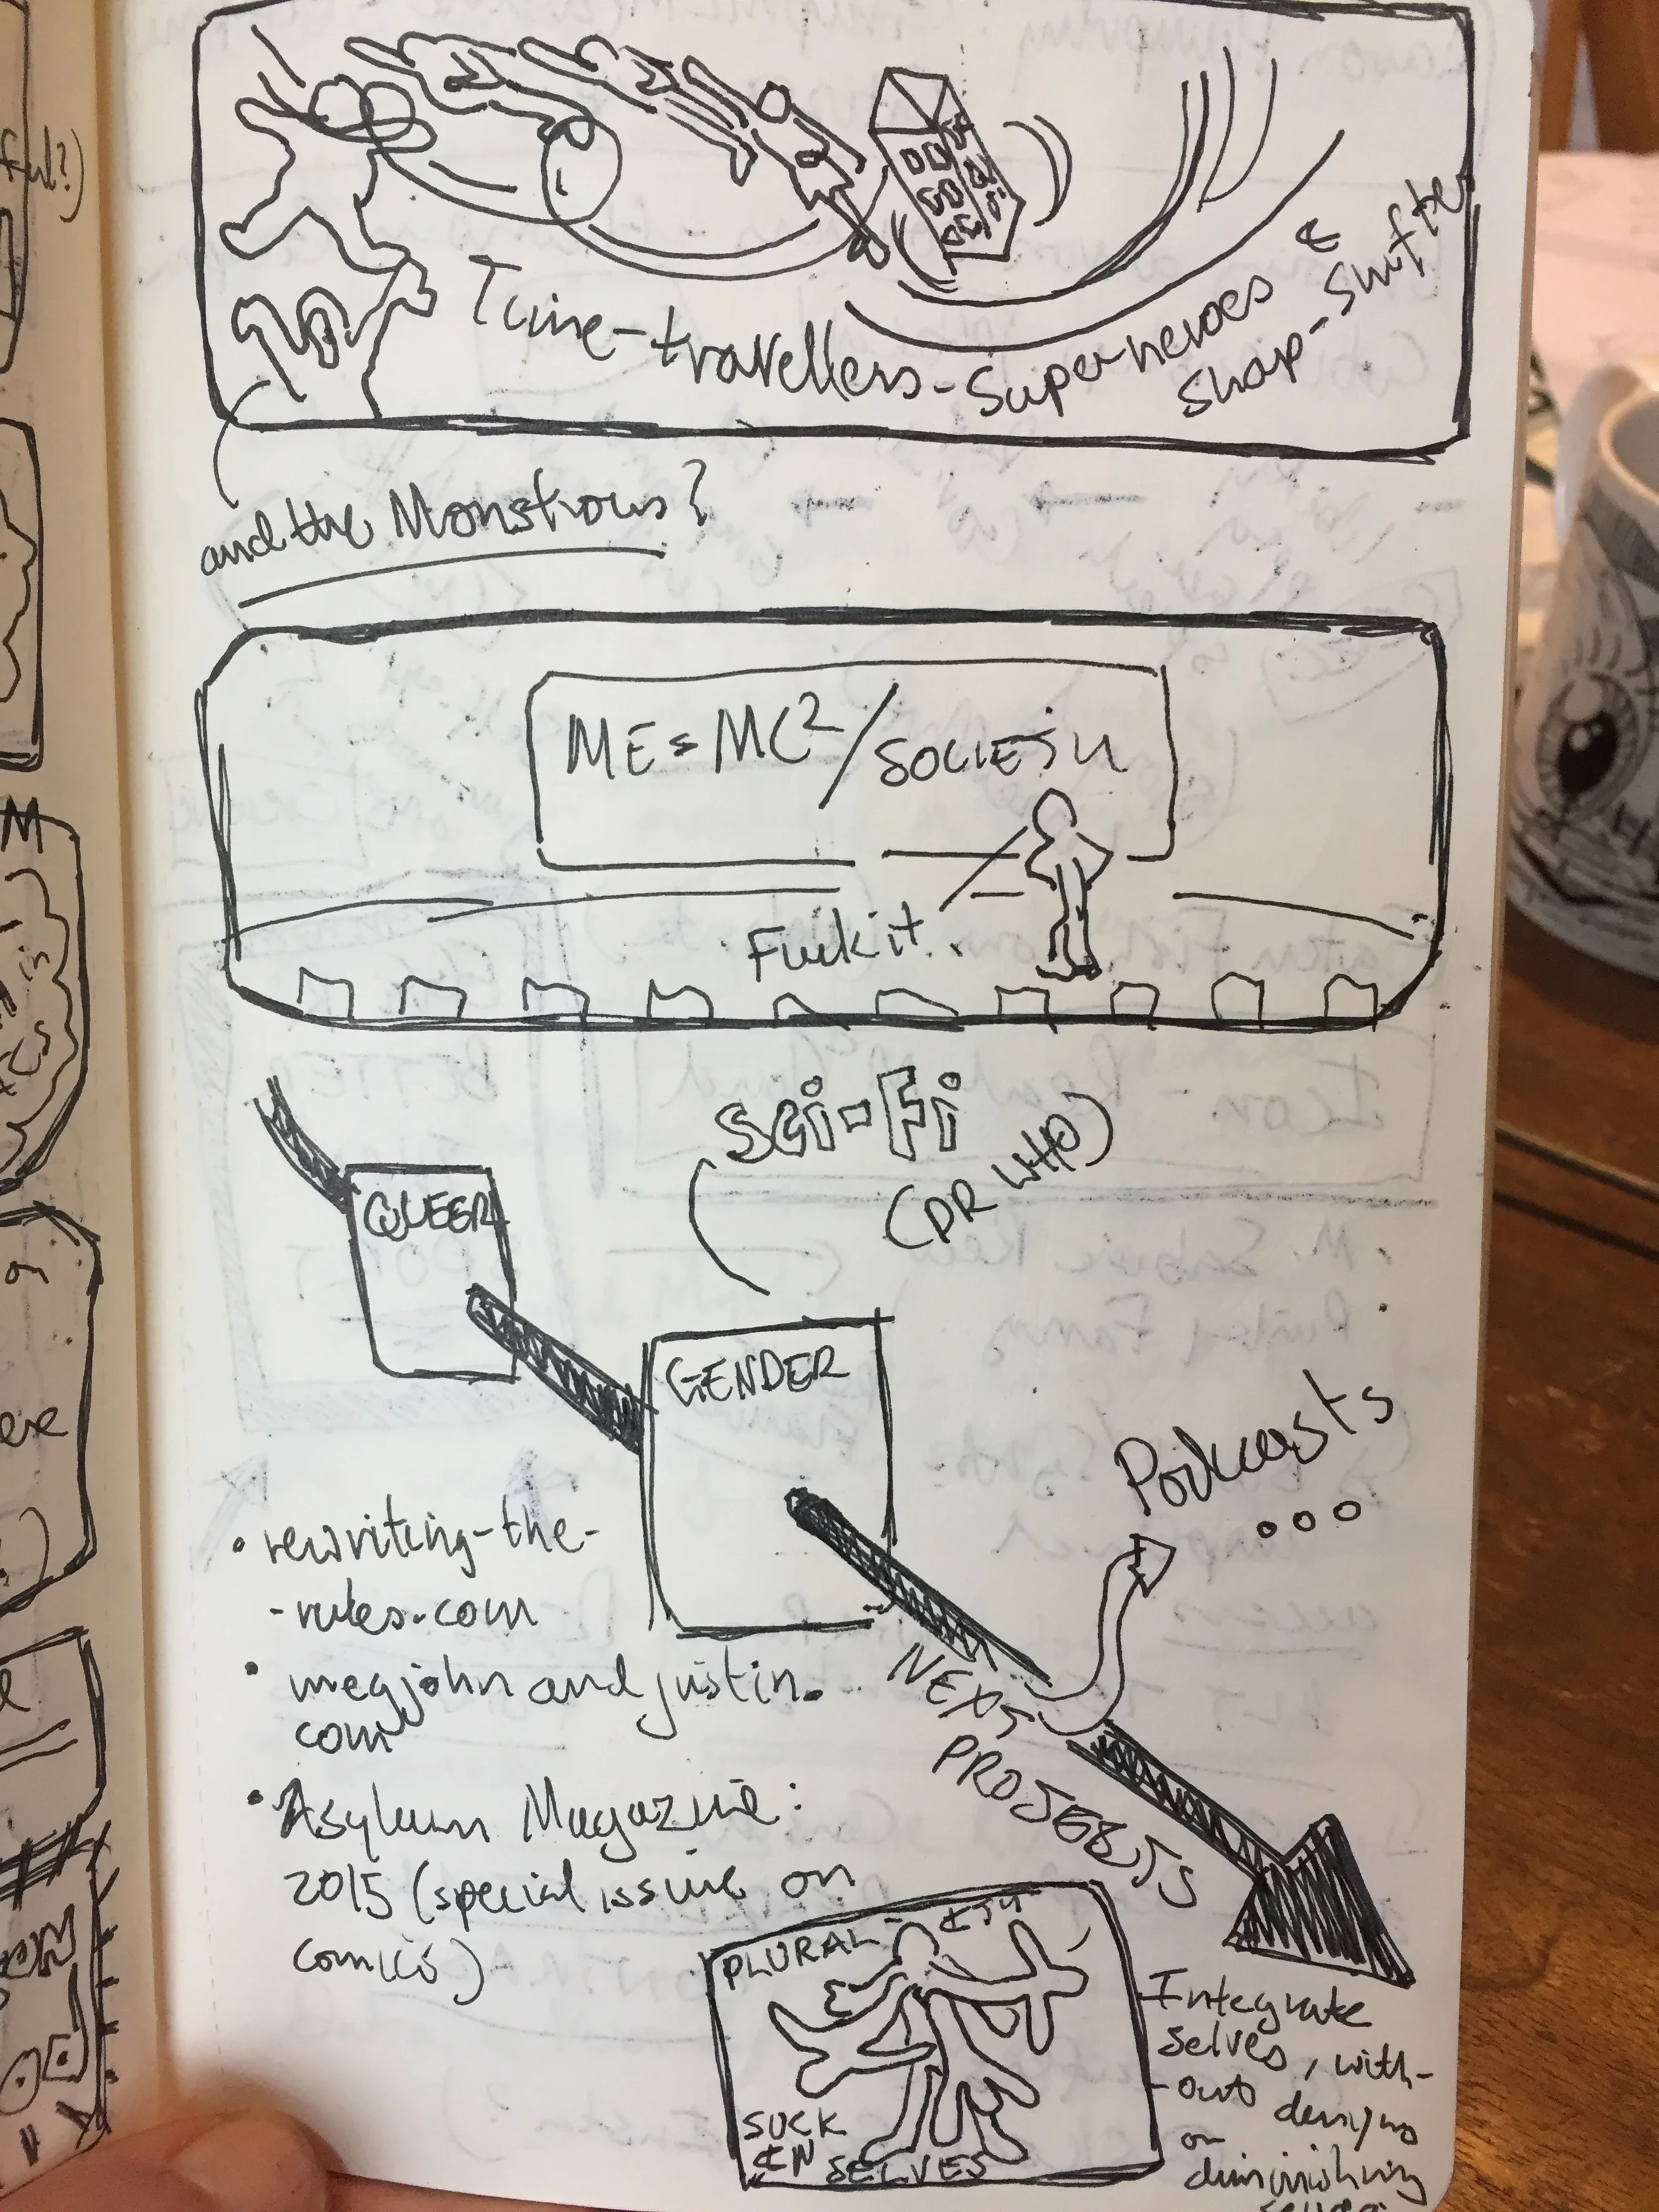 Time-travellers-Superheroes &
Shap-Shifter
and the Monstrous?
ME=MC²/SOCIETY
Fuck it.
Sci-Fi
(DR WHO)
QUEER
GENDER
Podcasts
...
• rewriting-the-
-rules.com
• megjohn and justin.
com
NEXT
PROJECTS
• Asylum Magazine:
2015 (special issue on
comics)
PLURAL-
SUCK
IN SELVES
Integrate
selves, with-
-out denying
or
diminishing